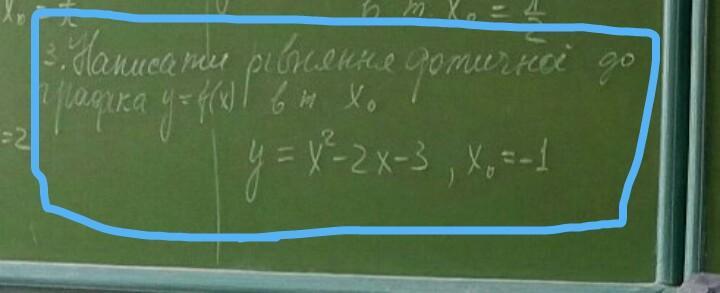 x₀ =
в т. x₀ = 1/2
3. Написати рівняння дотичної до
графіка y=f(x) в т x₀
=2
y = x²-2x-3, x₀=-1